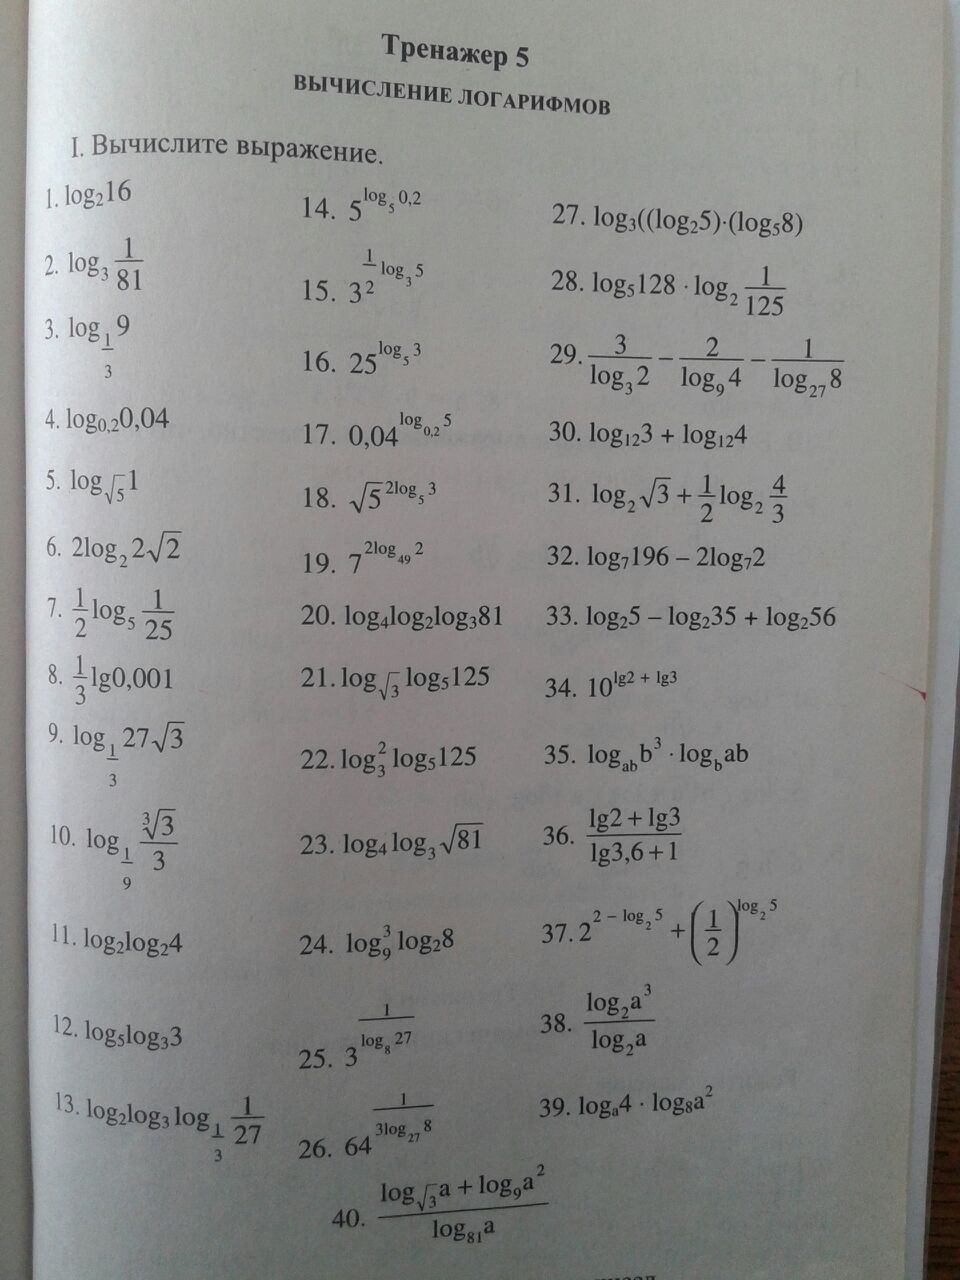 Тренажер 5
ВЫЧИСЛЕНИЕ ЛОГАРИФМОВ
I. Вычислите выражение.
1. log₂16
2. log₃ 1/81
3. log_{1/3} 9
4. log₀,₂0,04
5. log_{√5} 1
6. 2log₂ 2√2
7. 1/2 log₅ 1/25
8. 1/3 lg0,001
9. log_{1/3} 27√3
10. log_{1/9} ∛3/3
11. log₂log₂4
12. log₅log₃3
13. log₂log₃ log_{1/3} 1/27
14. 5^{log₅ 0,2}
15. 3^{1/2 log₃ 5}
16. 25^{log₅ 3}
17. 0,04^{log_{0,2} 5}
18. √5^{2log₅ 3}
19. 7^{2log₄₉ 2}
20. log₄log₂log₃81
21. log_{√3} log₅125
22. log₃² log₅125
23. log₄ log₃ √81
24. log₉³ log₂8
25. 3^{1/log₈ 27}
26. 64^{1/3log₂₇ 8}
27. log₃((log₂5)·(log₅8)
28. log₅128 · log₂ 1/125
29. 3/log₃ 2 – 2/log₉ 4 – 1/log₂₇ 8
30. log₁₂3 + log₁₂4
31. log₂ √3 + 1/2 log₂ 4/3
32. log₇196 – 2log₇2
33. log₂5 – log₂35 + log₂56
34. 10^{lg2 + lg3}
35. log_{ab} b³ · log_b ab
36. (lg2 + lg3)/(lg3,6 + 1)
37. 2^{2 – log₂ 5} + (1/2)^{log₂ 5}
38. log₂a³/log₂a
39. logₐ4 · log₈a²
40. (log_{√3} a + log₉a²)/log₈₁a